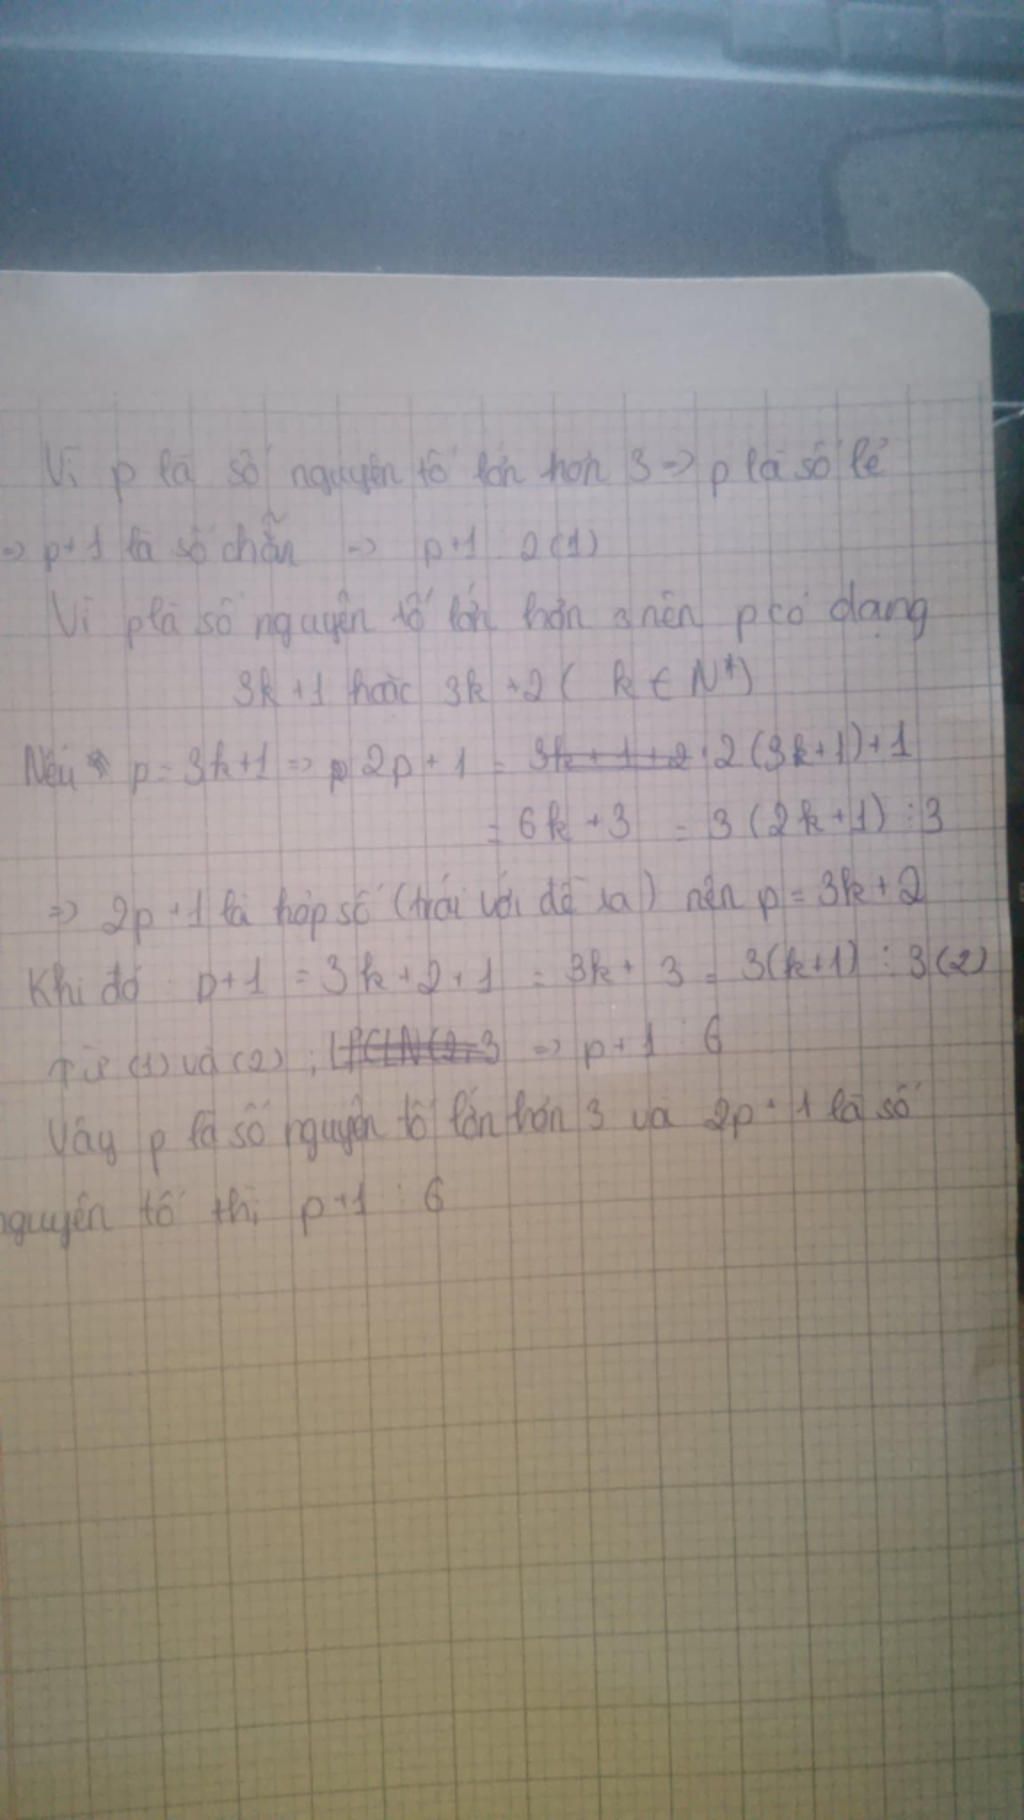 Vì p là số nguyên tố lớn hơn 3 => p là số lẻ
=> p+1 là số chẵn => p+1 ⋮ 2 (1)
Vì p là số nguyên tố lớn hơn 3 nên p có dạng
3k+1 hoặc 3k+2 ( k ∈ N*)
Nếu p = 3k+1 => 2p+1 = 2(3k+1)+1
= 6k+3 = 3(2k+1) ⋮ 3
=> 2p+1 là hợp số (trái với đề ra) nên p = 3k+2
Khi đó p+1 = 3k+2+1 = 3k+3 = 3(k+1) ⋮ 3 (2)
Từ (1) và (2) ; => p+1 ⋮ 6
Vậy p là số nguyên tố lớn hơn 3 và 2p+1 là số
nguyên tố thì p+1 ⋮ 6